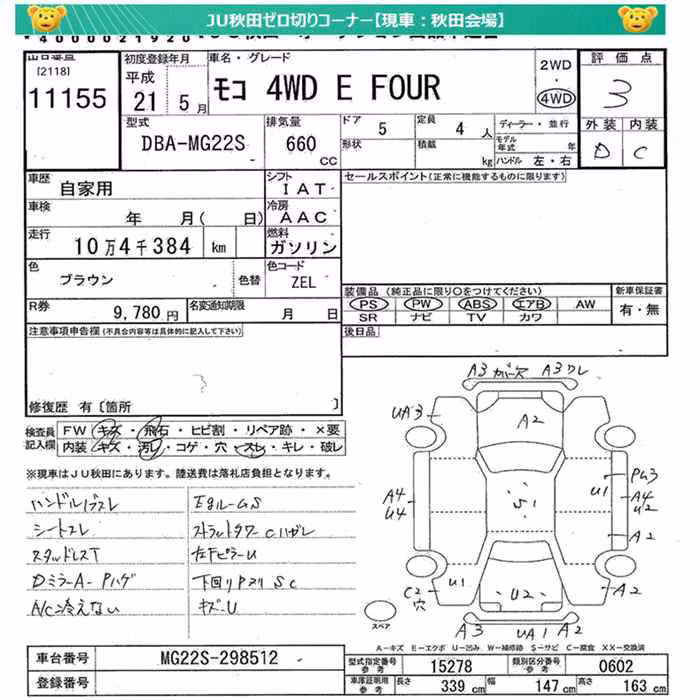 JU秋田ゼロ切りコーナー【現車：秋田会場】
出品番号
[2118]
11155
初度登録年月
平成
21 5月
車名・グレード
モコ 4WD E FOUR
2WD
4WD
評価点
3
外装 内装
D C
型式
DBA-MG22S
排気量
660
CC
ドア 5
定員 4 人
形状
積載 kg
ディーラー・並行
モデル年式 年
ハンドル 左・右
車歴 自家用
シフト IAT
セールスポイント(正常に機能するものに限ります)
車検 年 月( 日)
冷房 AAC
走行 10万4千384 km
燃料 ガソリン
色 ブラウン
色替
色コード ZEL
R券 9,780円
名変通知期限 月 日
装備品 (純正品に限り○をつけてください)
PS PW ABS エアB AW
SR ナビ TV カワ
新車保証書
有・無
後日品
注意事項申告欄(不具合内容等は具体的に記入して下さい)
修復歴 有[箇所 ]
検査員記入欄
FW キズ・飛石・ヒビ割・リペア跡・×要
内装 キズ・汚レ・コゲ・穴・スレ・キレ・破レ
※現車はJU秋田にあります。陸送費は落札店負担となります。
ハンドルスレ
シートスレ
スタッドレスT
DミラーA-Pハゲ
A/C冷えない
ストラットタワーCハガレ
左FピラーU
下回りPヌリSC
キズ-U
A3 A3
UA3
A2
A4
U4
S1
U1
A4
U2
A2
U1
C2
穴
U2
A2
A3 UA1 A2
スペア
A-キズ E-エクボ U-凹み W-補修跡 S-サビ C-腐食 XX-交換済
車台番号 MG22S-298512
登録番号
型式指定番号 参考 15278
類別区分番号 参考 0602
車庫証明用 参考
長さ 339 cm
幅 147 cm
高さ 163 cm